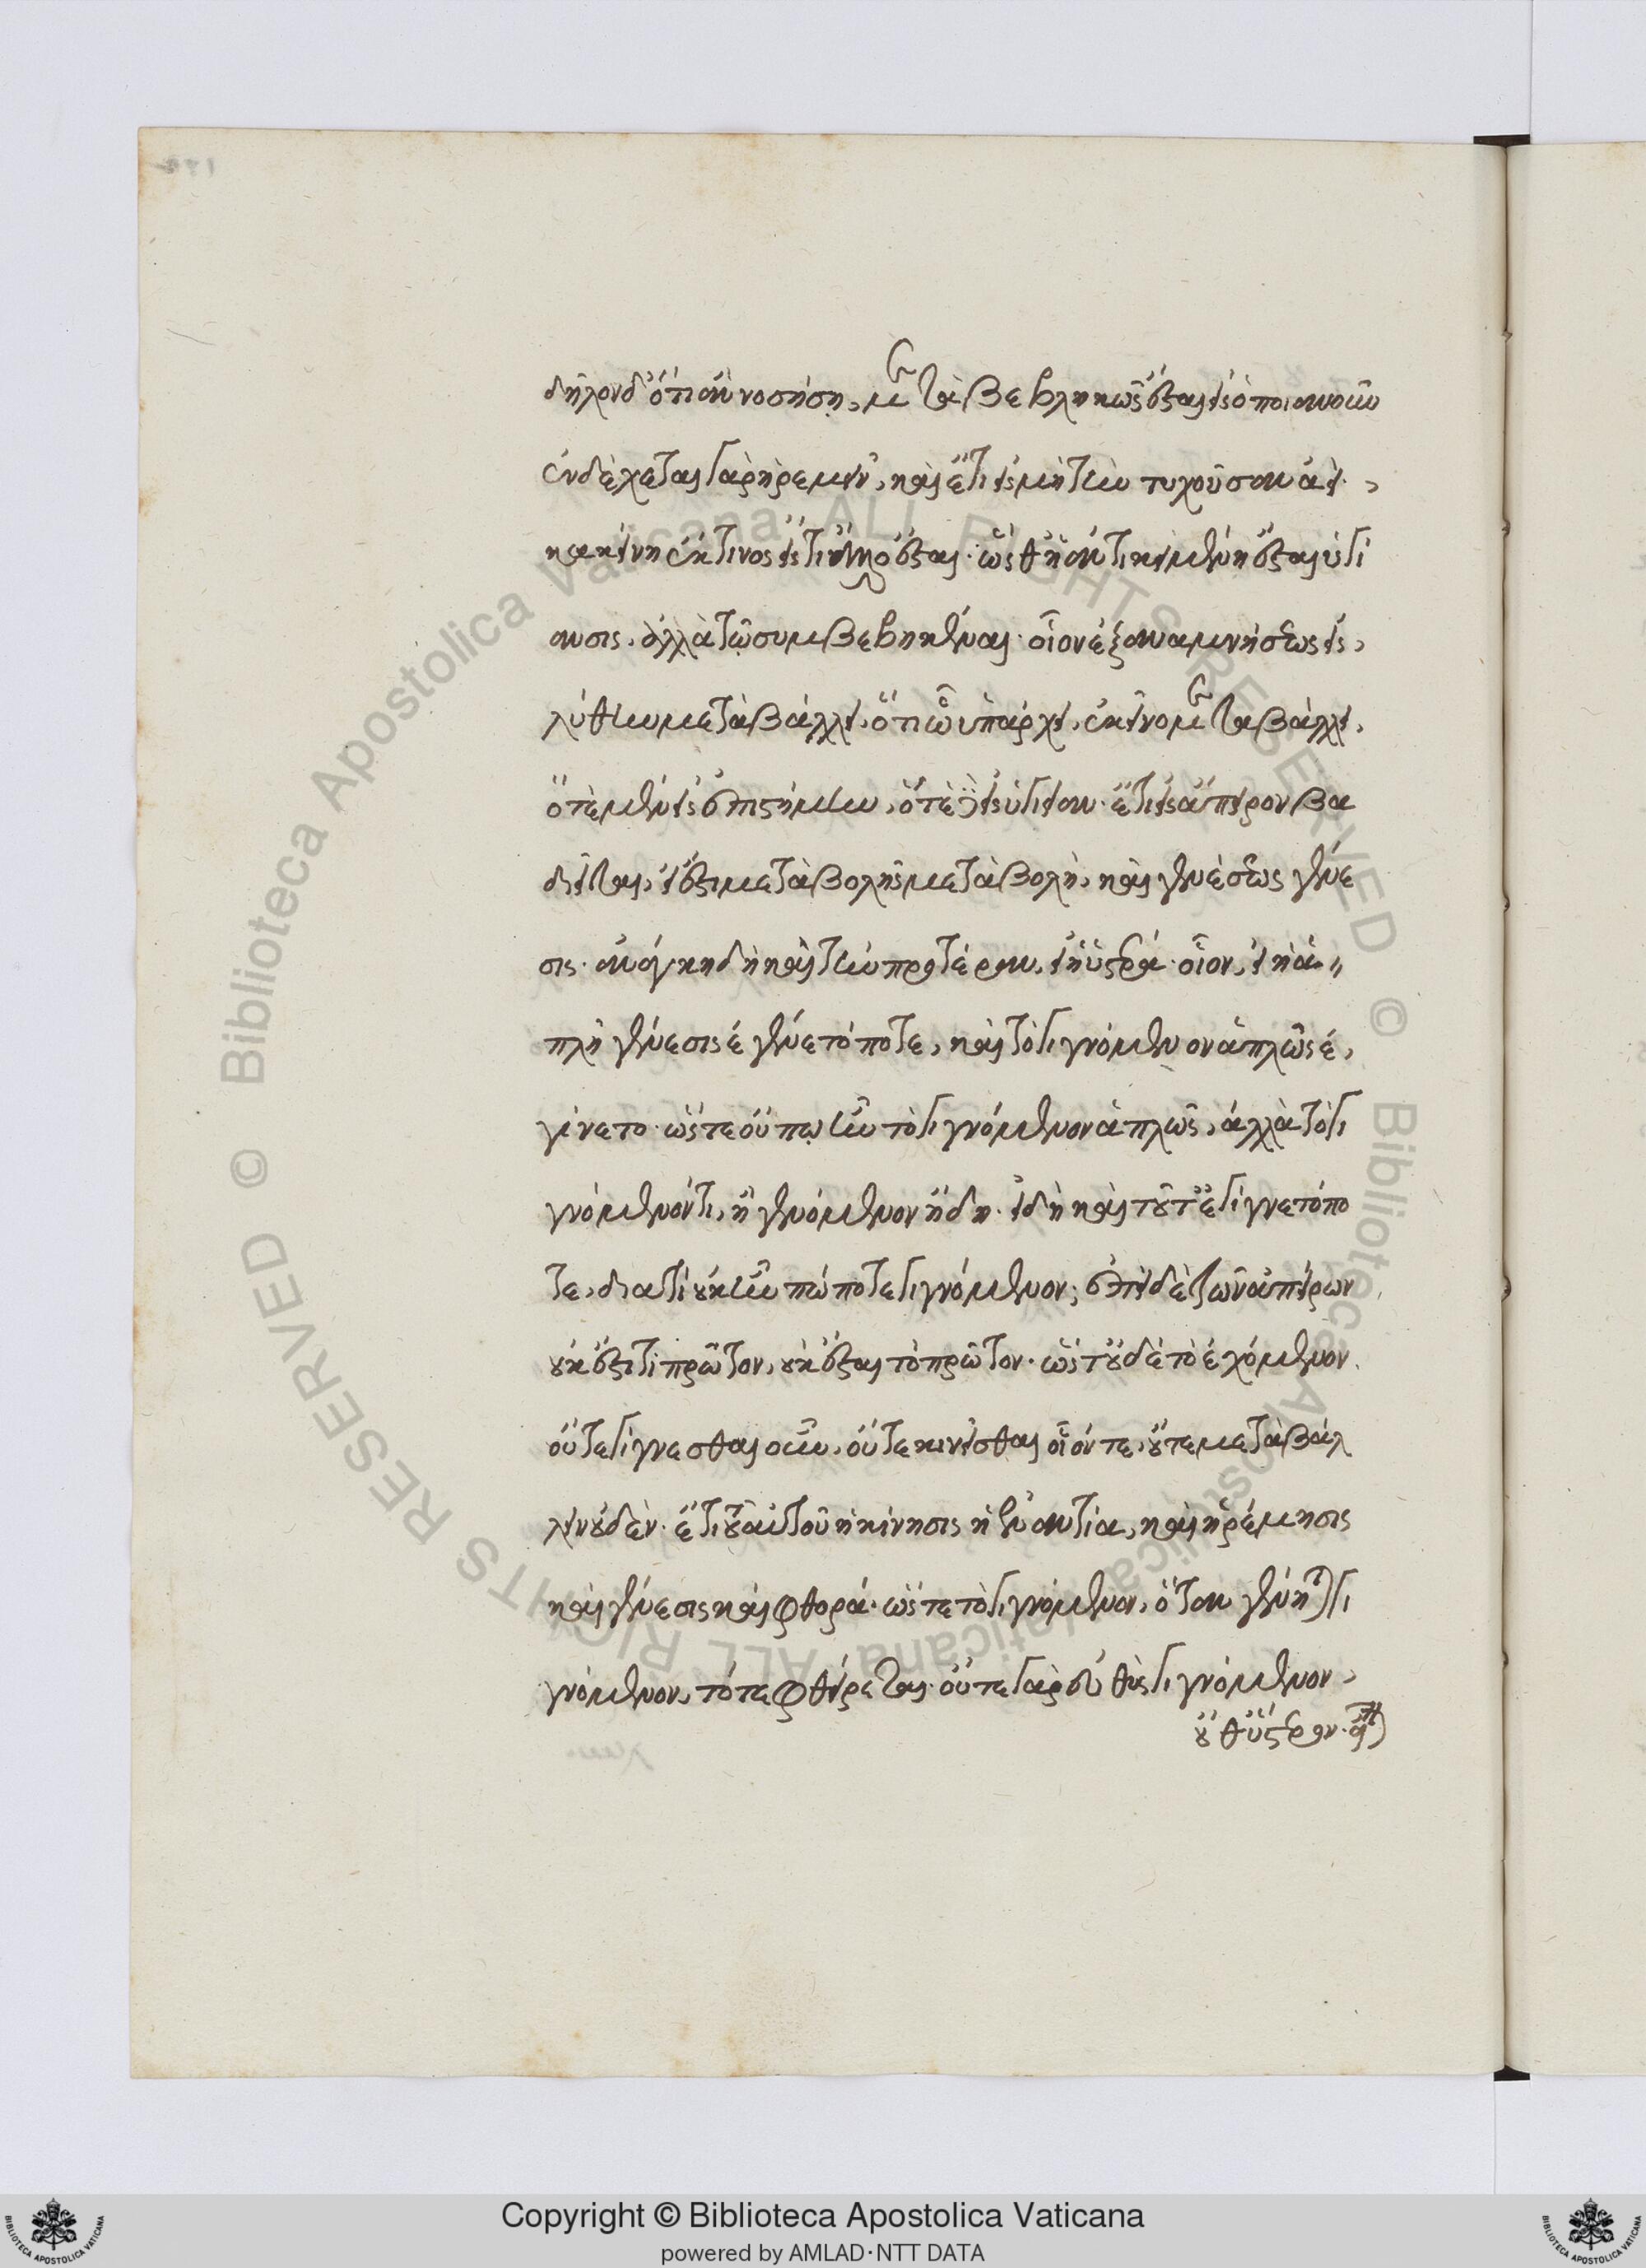 δῆλον δ' ὅτι ἂν νοσήσῃ, μεταβεβληκὼς ἔσται εἰς ὁποιανοῦν
ἐνδέχεται γὰρ ἠρεμεῖν, καὶ ἔτι εἰς μὴ τὴν τυχοῦσαν ἀεὶ·
κἀκείνη ἔκ τινος εἴς τι ἄλλο ἔσται· ὥσθ' ἡ ἀντικειμένη ἔσται ὑγί
ανσις. ἀλλὰ τῷ συμβεβηκέναι· οἷον ἐξ ἀναμνήσεως εἰς
λήθην μεταβάλλει, ὅτι ᾧ ὑπάρχει, ἐκεῖνο μεταβάλλει,
ὁτὲ μὲν εἰς ἐπιστήμην, ὁτὲ δὲ εἰς ὑγίειαν. ἔτι εἰς ἄπειρον βα
διεῖται, εἰ ἔσται μεταβολῆς μεταβολὴ, καὶ γενέσεως γένε
σις. ἀνάγκη δὴ καὶ τὴν προτέραν, εἰ ἡ ὑστέρα· οἷον, εἰ ἡ ἁ
πλῆ γένεσις ἐγένετό ποτε, καὶ τὸ γιγνόμενον ἁπλῶς ἐ
γίνετο· ὥστε οὔπω ἦν τὸ γιγνόμενον ἁπλῶς, ἀλλὰ τὸ γι
γνόμενόν τι, ἢ γενόμενον ἤδη. εἰ δὴ καὶ τοῦτ' ἐγίγνετό πο
τε, διατί οὐκ ἦν πώποτε γιγνόμενον; ἐπεὶ δὲ τῶν ἀπείρων
οὐκ ἔστι τι πρῶτον, οὐκ ἔσται τὸ πρῶτον. ὥστ' οὐδὲ τὸ ἐχόμενον.
οὔτε γίγνεσθαι οὖν, οὔτε κινεῖσθαι οἷόν τε, οὔτε μεταβάλ
λειν οὐδέν. ἔτι τοῦ αὐτοῦ ἡ κίνησις ἡ ἐναντία, καὶ ἠρέμησις
καὶ γένεσις καὶ φθορά. ὥστε τὸ γιγνόμενον, ὅταν γένηται γι
γνόμενον, τότε φθείρεται. οὔτε γὰρ εὐθὺς γιγνόμενον,
οὔθ' ὕστερον.